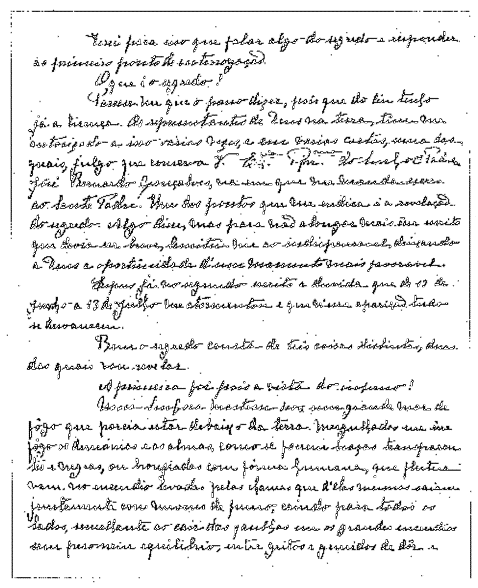 Terei para isso que falar algo do segredo e responder
ao primeiro ponto de interrogação.
O que é o segredo?
Parece-me que o posso dizer, pois que do Céu tenho
já a licença. Os representantes de Deus na terra, têm-me
autorizado a isso várias vezes, e em várias cartas, uma das
quais, julgo que conserva V. Ex.cia Rev.ma do Senhor Padre
José Bernardo Gonçalves, na em que me manda escrever
ao Santo Padre. Um dos pontos que me indica é a revelação
do segredo. Algo disse, mas para não alongar mais esse escrito
que devia ser breve, limitei-me ao indispensável, deixando
a Deus a oportunidade d'um momento mais favorável.
Expus já no segundo escrito a dúvida que de 13 de
Junho a 13 de Julho me atormentou e que n'essa aparição tudo
se desvaneceu.
Bem o segredo consta de três coisas distintas, duas
das quais vou revelar.
A primeira foi pois a vista do inferno!
Nossa Senhora mostrou-nos um grande mar de
fôgo que parecia estar debaixo da terra. Mergulhados em êsse
fôgo os demónios e as almas, como se fossem brazas transparen-
tes e negras, ou bronziadas com fórma humana, que flutua-
vam no incendio levadas pelas chamas que d'elas mesmas saiam
juntamente com nuvens de fumo, caindo para todos os
lados, semelhante ao cair das faulhas em os grandes incendios
sem pêso nem equilíbrio, entre gritos e gemidos de dôr e